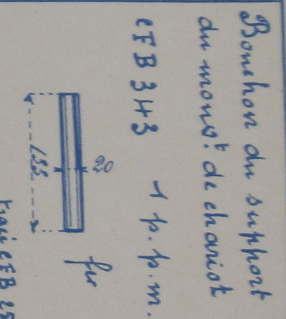 Bouchon du support
du mouvt de chariot
CFB 3H3 1 p.p.m.
20
155
fer